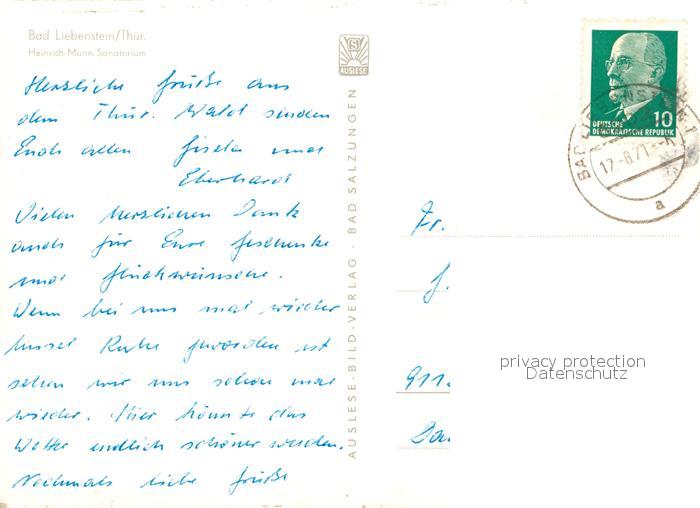 Bad Liebenstein/Thür.
Heinrich-Mann-Sanatorium
AUSLESE
Herzliche Grüße aus
dem Thür. Wald senden
Euch allen Gisela und
Eberhard
Vielen herzlichen Dank
auch für Eure Geschenke
und Glückwünsche.
Wenn bei uns mal wieder
Ruhe geworden ist
sehen wir uns schon mal
wieder. Hier könnte das
Wetter endlich schöner werden.
Nochmals liebe Grüße
AUSLESE-BILD-VERLAG · BAD SALZUNGEN
10
DEUTSCHE
DEMOKRATISCHE REPUBLIK
BAD LIEBENSTEIN
17.-8.71
a
Fr.
G.
911.
privacy protection
Datenschutz